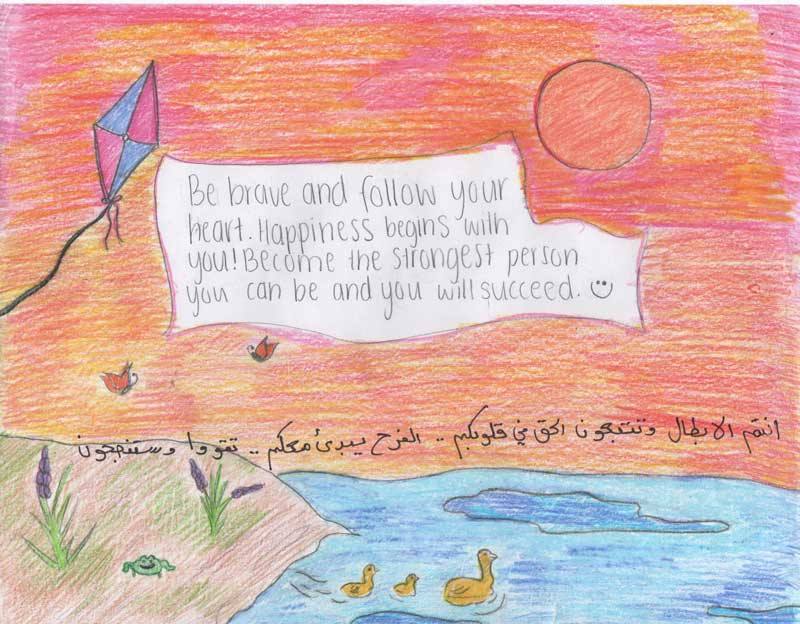 Be brave and follow your
heart. Happiness begins with
you! Become the strongest person
you can be and you will succeed. ☺
انتم الابطال وتتبعون الحق في قلوبكم .. الفرح يبدئ معكم .. تقووا وستنجحون